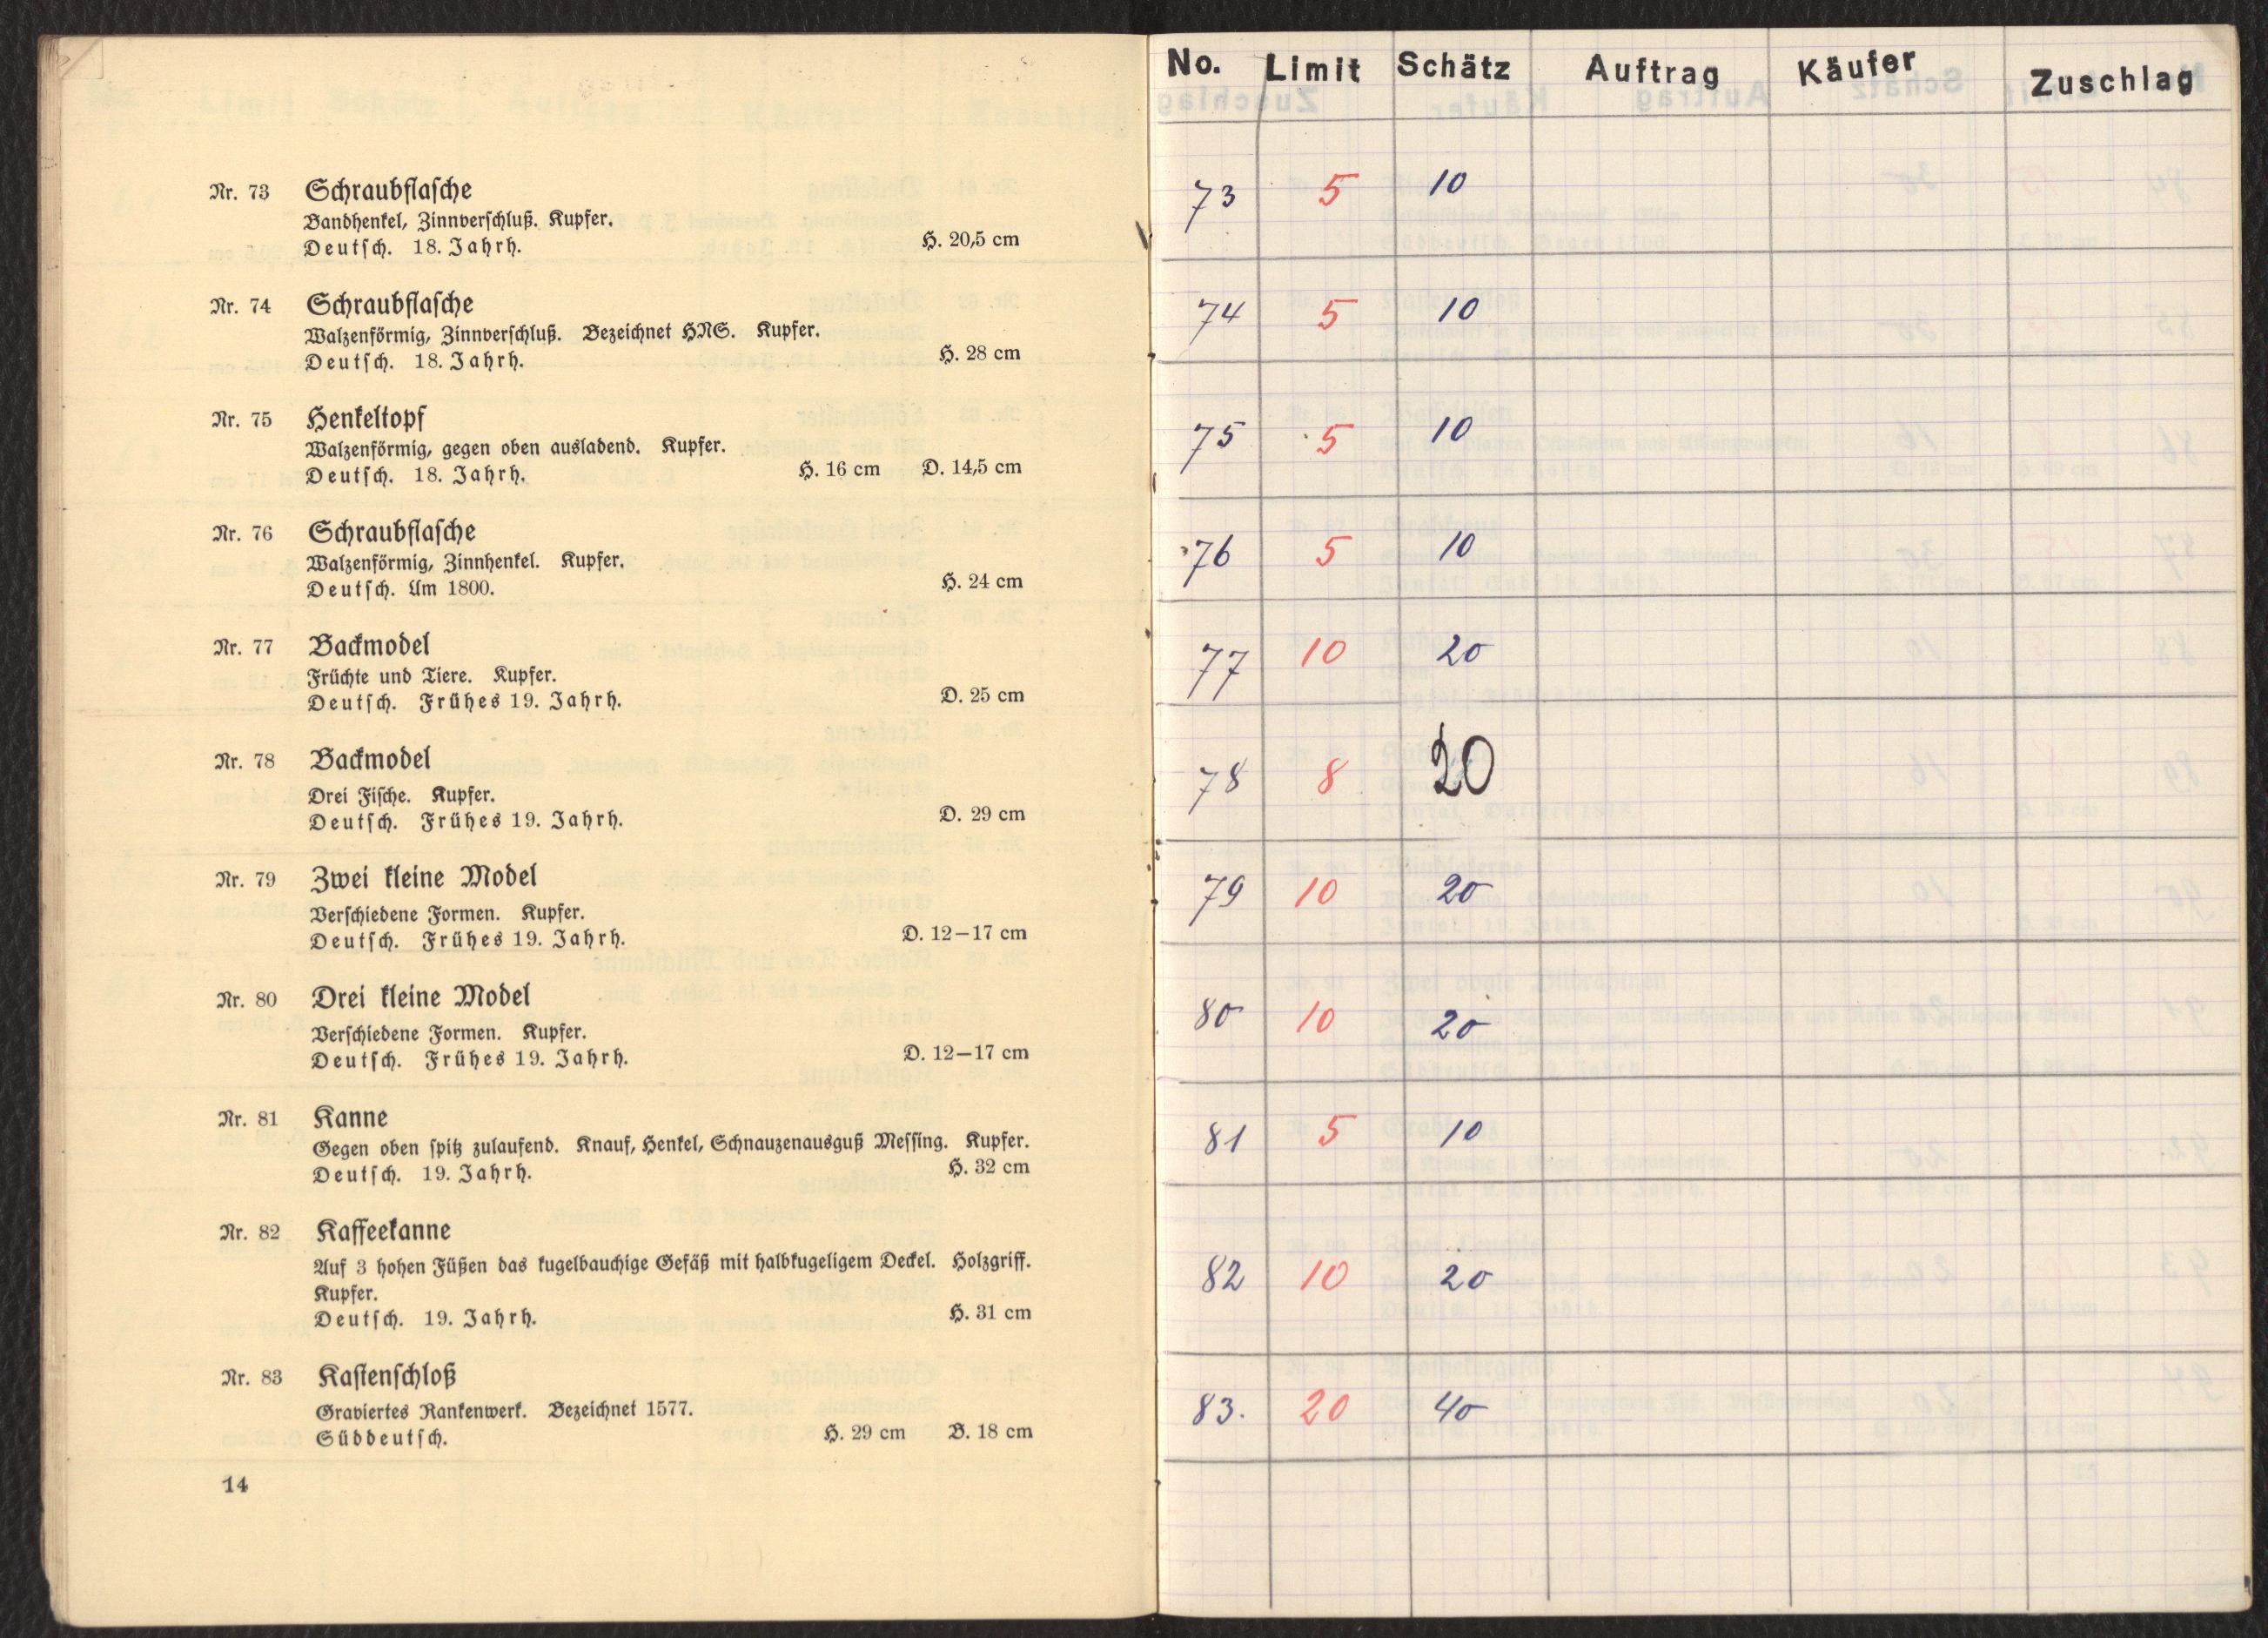 Nr. 73 Schraubflasche
Bandhenkel, Zinnverschluß. Kupfer.
Deutsch. 18. Jahrh. H. 20,5 cm
Nr. 74 Schraubflasche
Walzenförmig, Zinnverschluß. Bezeichnet HNS. Kupfer.
Deutsch. 18. Jahrh. H. 28 cm
Nr. 75 Henkeltopf
Walzenförmig, gegen oben ausladend. Kupfer.
Deutsch. 18. Jahrh. H. 16 cm D. 14,5 cm
Nr. 76 Schraubflasche
Walzenförmig, Zinnhenkel. Kupfer.
Deutsch. Um 1800. H. 24 cm
Nr. 77 Backmodel
Früchte und Tiere. Kupfer.
Deutsch. Frühes 19. Jahrh. D. 25 cm
Nr. 78 Backmodel
Drei Fische. Kupfer.
Deutsch. Frühes 19. Jahrh. D. 29 cm
Nr. 79 Zwei kleine Model
Verschiedene Formen. Kupfer.
Deutsch. Frühes 19. Jahrh. D. 12—17 cm
Nr. 80 Drei kleine Model
Verschiedene Formen. Kupfer.
Deutsch. Frühes 19. Jahrh. D. 12—17 cm
Nr. 81 Kanne
Gegen oben spitz zulaufend. Knauf, Henkel, Schnauzenausguß Messing. Kupfer.
Deutsch. 19. Jahrh. H. 32 cm
Nr. 82 Kaffeekanne
Auf 3 hohen Füßen das kugelbauchige Gefäß mit halbkugeligem Deckel. Holzgriff.
Kupfer.
Deutsch. 19. Jahrh. H. 31 cm
Nr. 83 Kastenschloß
Graviertes Rankenwerk. Bezeichnet 1577.
Süddeutsch. H. 29 cm B. 18 cm
14
No. Limit Schätz Auftrag Käufer Zuschlag
73 5 10
74 5 10
75 5 10
76 5 10
77 10 20
78 8 20
79 10 20
80 10 20
81 5 10
82 10 20
83. 20 40